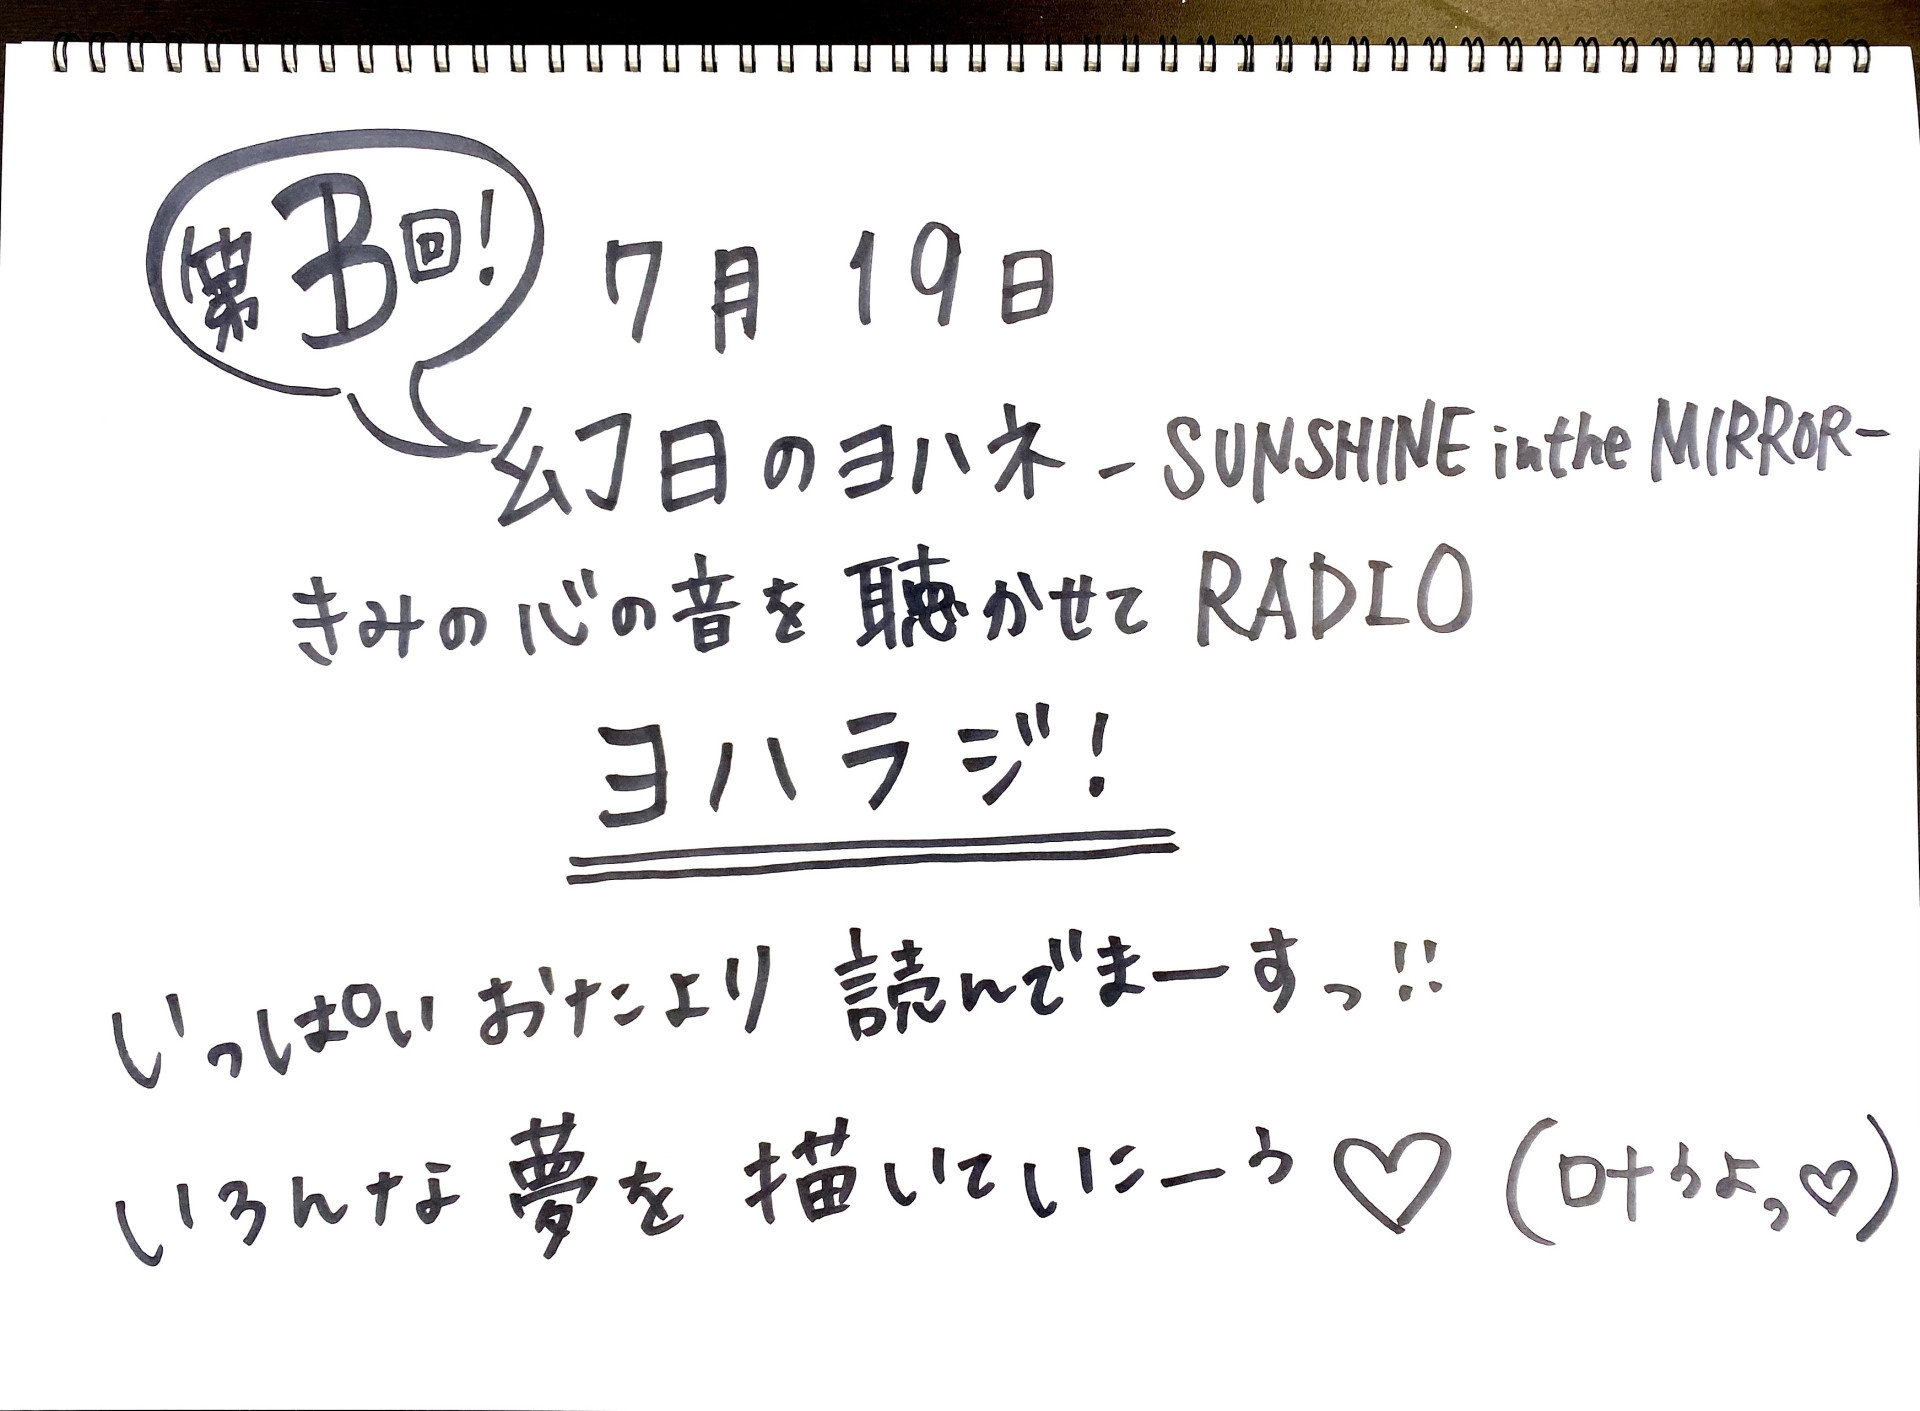 第3回!
7月19日
幻日のヨハネ-SUNSHINE in the MIRROR-
きみの心の音を聴かせてRADIO
ヨハラジ!
いっぱいおたより読んでまーすっ!!
いろんな夢を描いていこーう♡(叶うよっ♡)